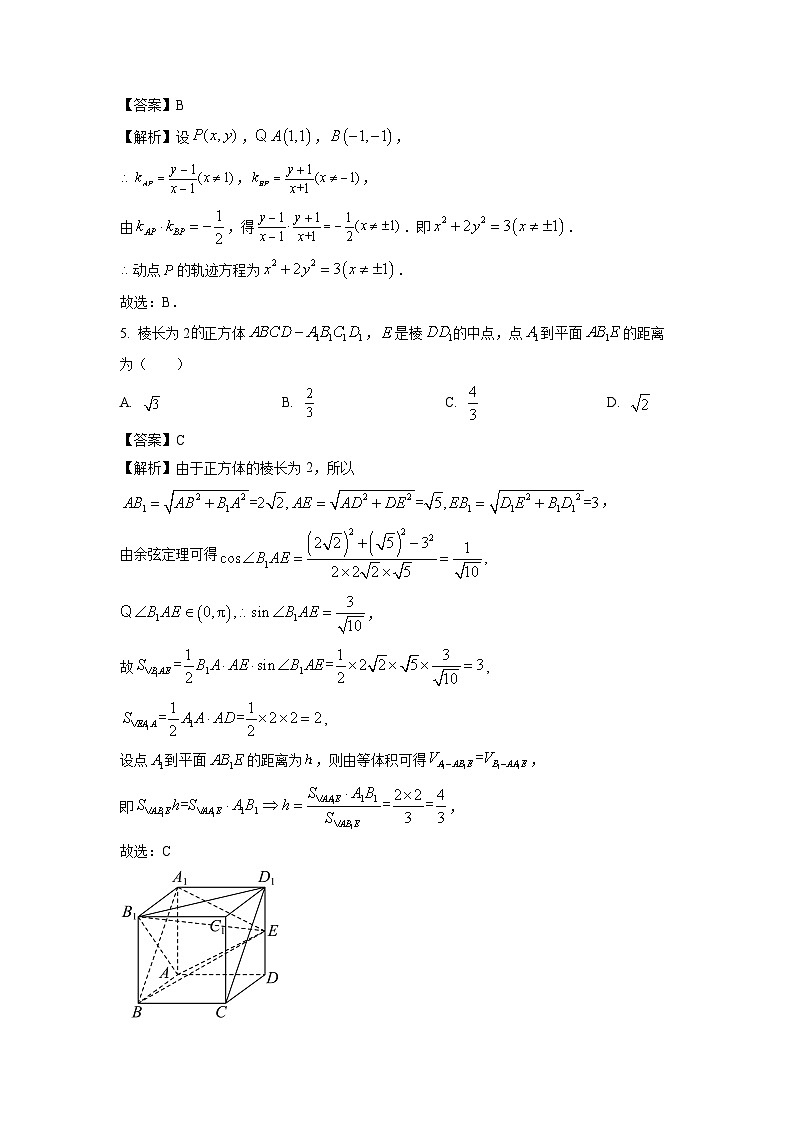 【答案】B
【解析】设P(x, y)，Q A(1,1)，B(−1,−1)，
∴ k_{AP} = \frac{y−1}{x−1}(x ≠ 1)，k_{BP} = \frac{y+1}{x+1}(x ≠ −1)，
由k_{AP} · k_{BP} = −\frac{1}{2}，得\frac{y−1}{x−1}·\frac{y+1}{x+1} = −\frac{1}{2}(x ≠ ±1)．即x² + 2y² = 3(x ≠ ±1)．
∴动点P的轨迹方程为x² + 2y² = 3(x ≠ ±1)．
故选：B．
5. 棱长为2的正方体ABCD − A₁B₁C₁D₁，E是棱DD₁的中点，点A₁到平面AB₁E的距离
为（　　）
A. √3 B. \frac{2}{3} C. \frac{4}{3} D. √2
【答案】C
【解析】由于正方体的棱长为2，所以
AB₁ = \sqrt{AB² + B₁A²}=2√2, AE = \sqrt{AD² + DE²}=√5, EB₁ = \sqrt{D₁E² + B₁D₁²}=3，
由余弦定理可得cos∠B₁AE = \frac{(2√2)² + (√5)² − 3²}{2×2√2×√5} = \frac{1}{√10}，
Q ∠B₁AE ∈ (0, π), ∴ sin∠B₁AE = \frac{3}{√10}，
故S_{√B₁AE}=\frac{1}{2}B₁A · AE · sin∠B₁AE=\frac{1}{2}×2√2×√5×\frac{3}{√10} = 3，
S_{√EA₁A}=\frac{1}{2}A₁A · AD=\frac{1}{2}×2×2 = 2，
设点A₁到平面AB₁E的距离为h，则由等体积可得V_{A₁−AB₁E}=V_{B₁−AA₁E}，
即S_{√AB₁E}h=S_{√AA₁E} · A₁B₁ ⇒ h = \frac{S_{√AA₁E} · A₁B₁}{S_{√AB₁E}}=\frac{2×2}{3}=\frac{4}{3}，
故选：C
A₁ D₁
B₁ C₁ E
A D
B C